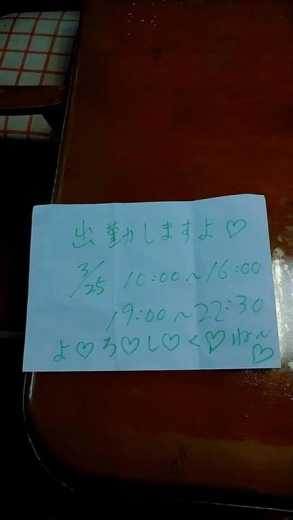 出勤しますよ♡
3/25 10:00～16:00
19:00～22:30
よ♡ろ♡し♡く♡ね～♡